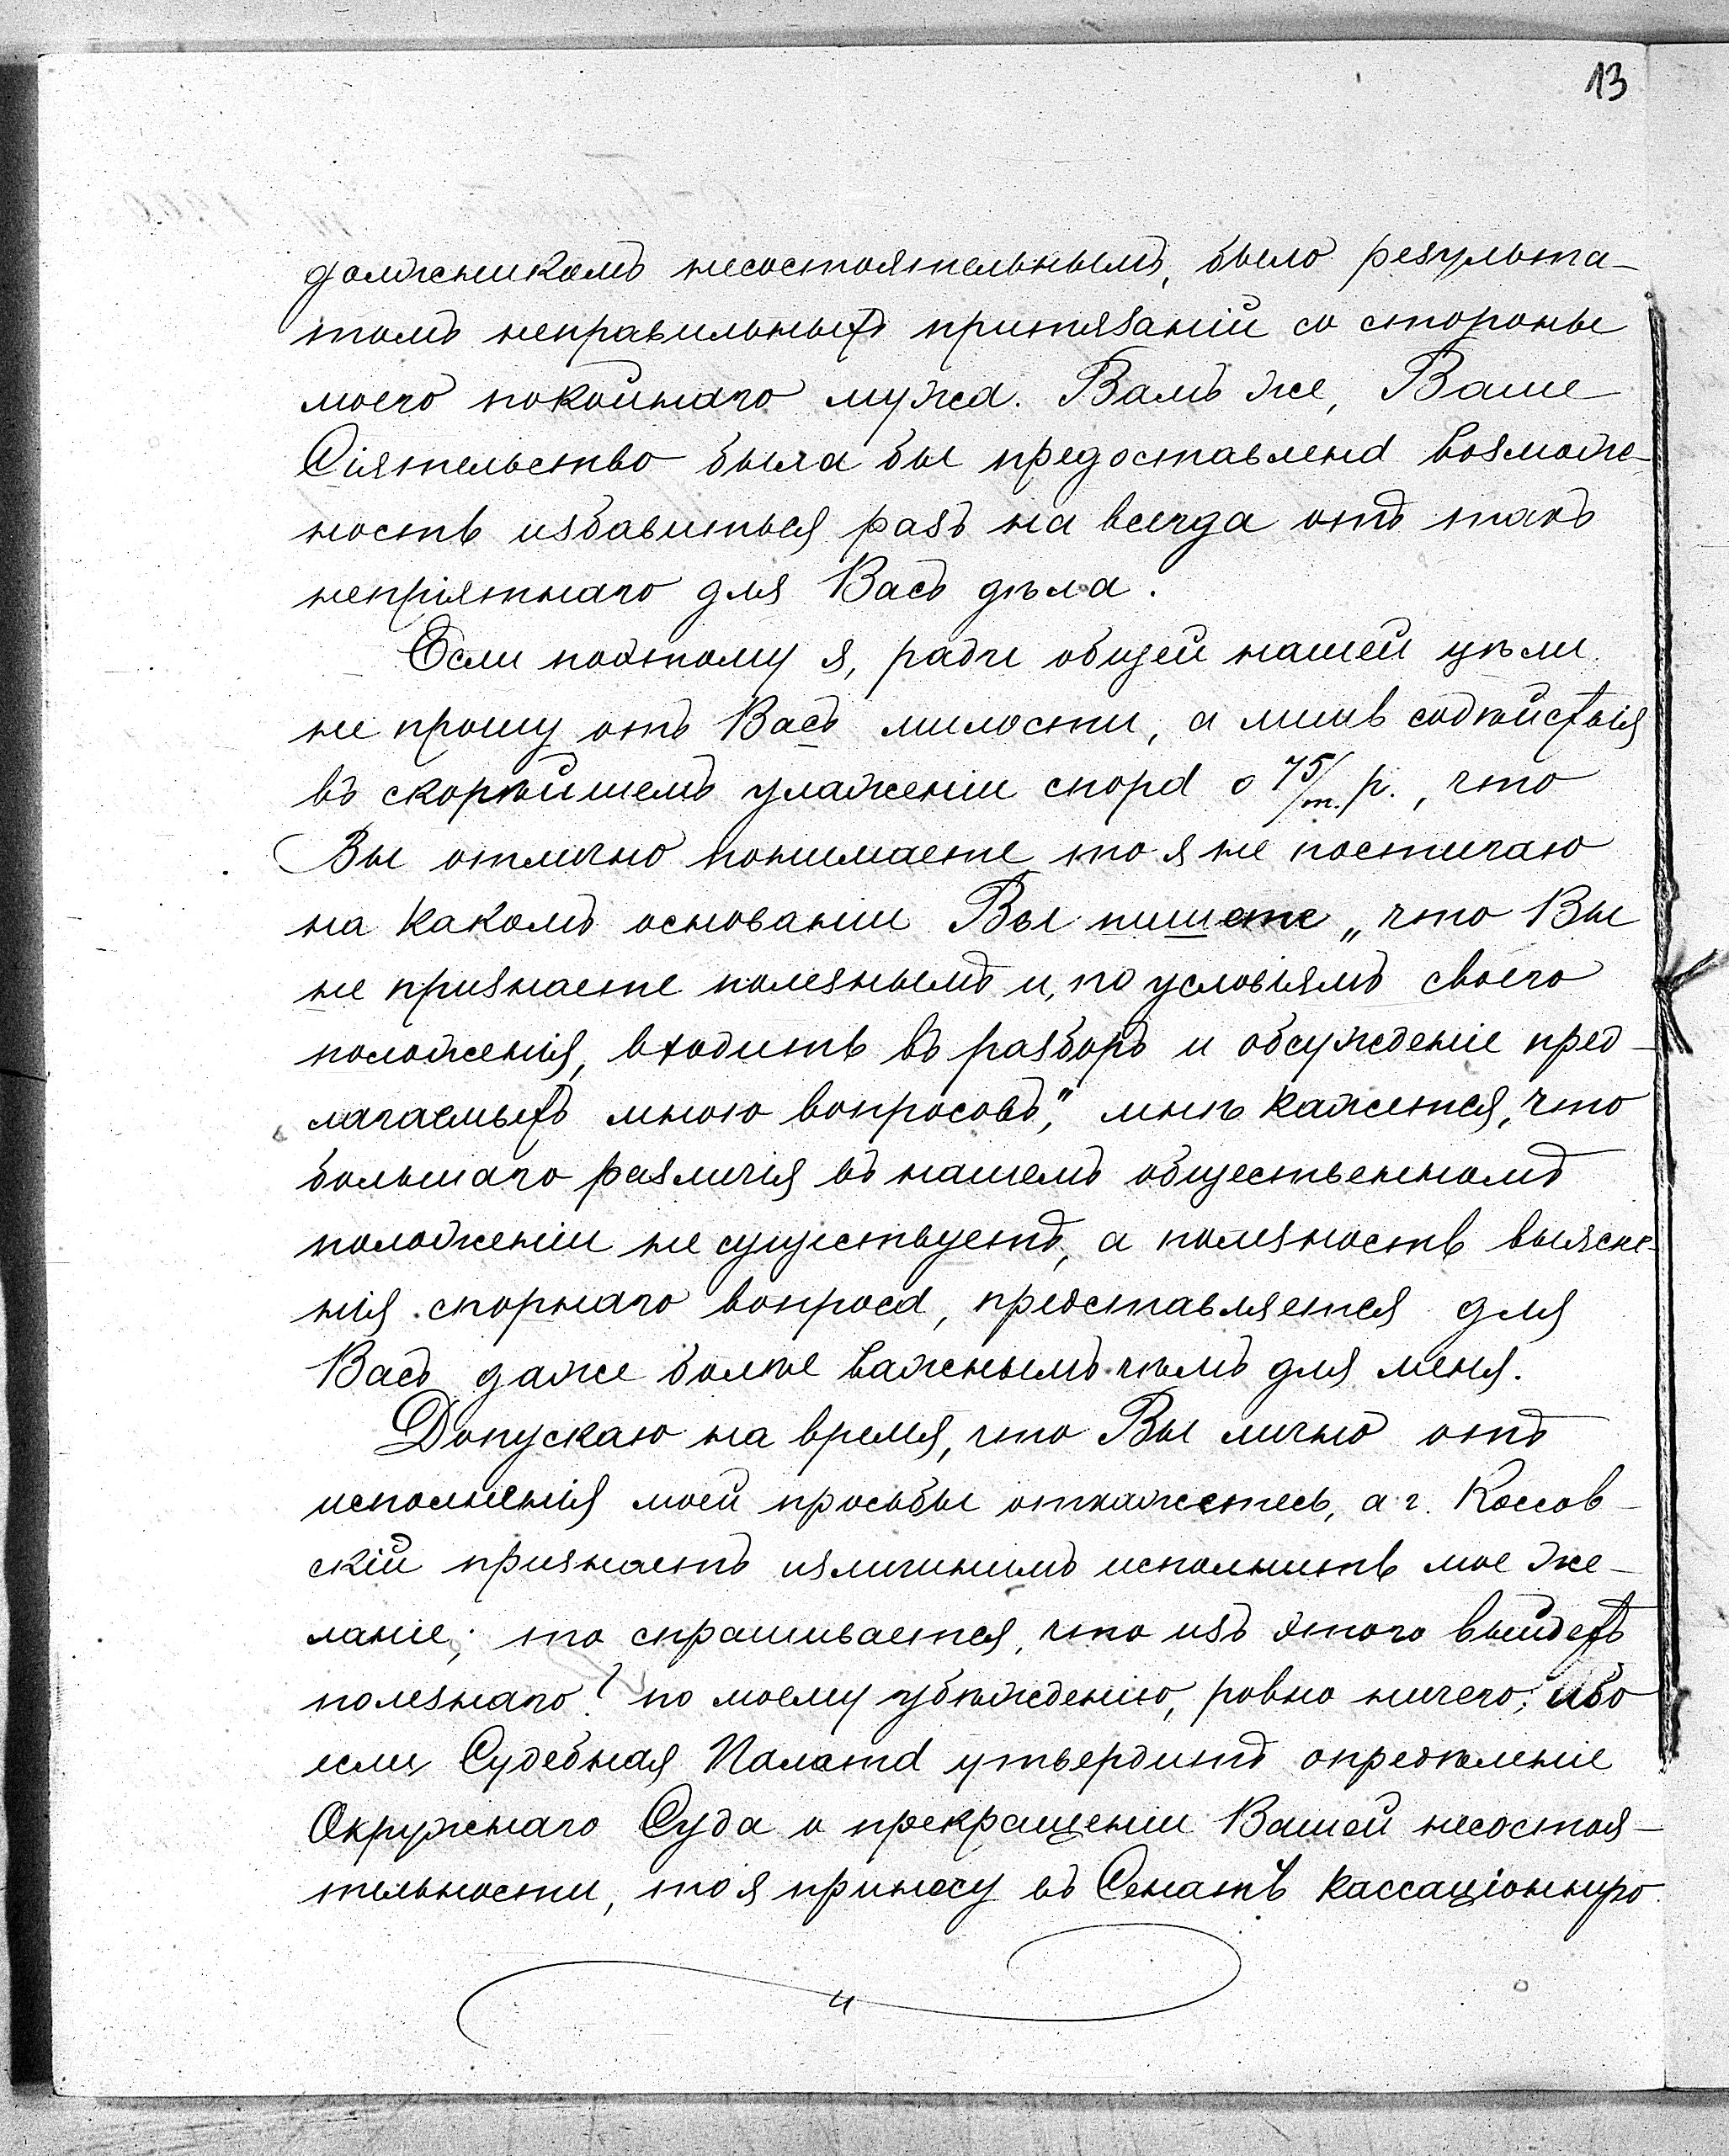 13
должникомъ несостоятельнымъ, было результа-
томъ неправильныхъ притязаній со стороны
моего покойнаго мужа. Вамъ же, Ваше
Сіятельство была бы предоставлена возмож-
ность избавиться разъ на всегда отъ такъ
непріятнаго для Васъ дѣла.
Если поэтому я, ради общей нашей цѣли
не прошу отъ Васъ милости, а лишь содѣйствія
въ скорѣйшемъ улаженіи спора о 75/т. р., что
Вы отлично понимаете то я не постигаю
на какомъ основаніи Вы пишете „что Вы
не признаете полезнымъ и, по условіямъ своего
положенія, входить въ разборъ и обсужденіе пред-
лагаемыхъ мною вопросовъ," мнѣ кажется, что
большаго различія въ нашемъ общественномъ
положеніи не существуетъ, а полезность выясне-
нія спорнаго вопроса, представляется для
Васъ даже болѣе важнымъ чѣмъ для меня.
Допускаю на время, что Вы лично отъ
исполненія моей просьбы откажетесь, а г. Коссов-
скій признаетъ излишнимъ исполнить мое же-
ланіе; то спрашивается, что изъ этого выйдетъ
полезнаго? по моему убѣжденію, ровно ничего; ибо
если Судебная Палата утвердитъ опредѣленіе
Окружнаго Суда о прекращеніи Вашей несостоя-
тельности, то я принесу въ Сенатъ кассаціонную
4